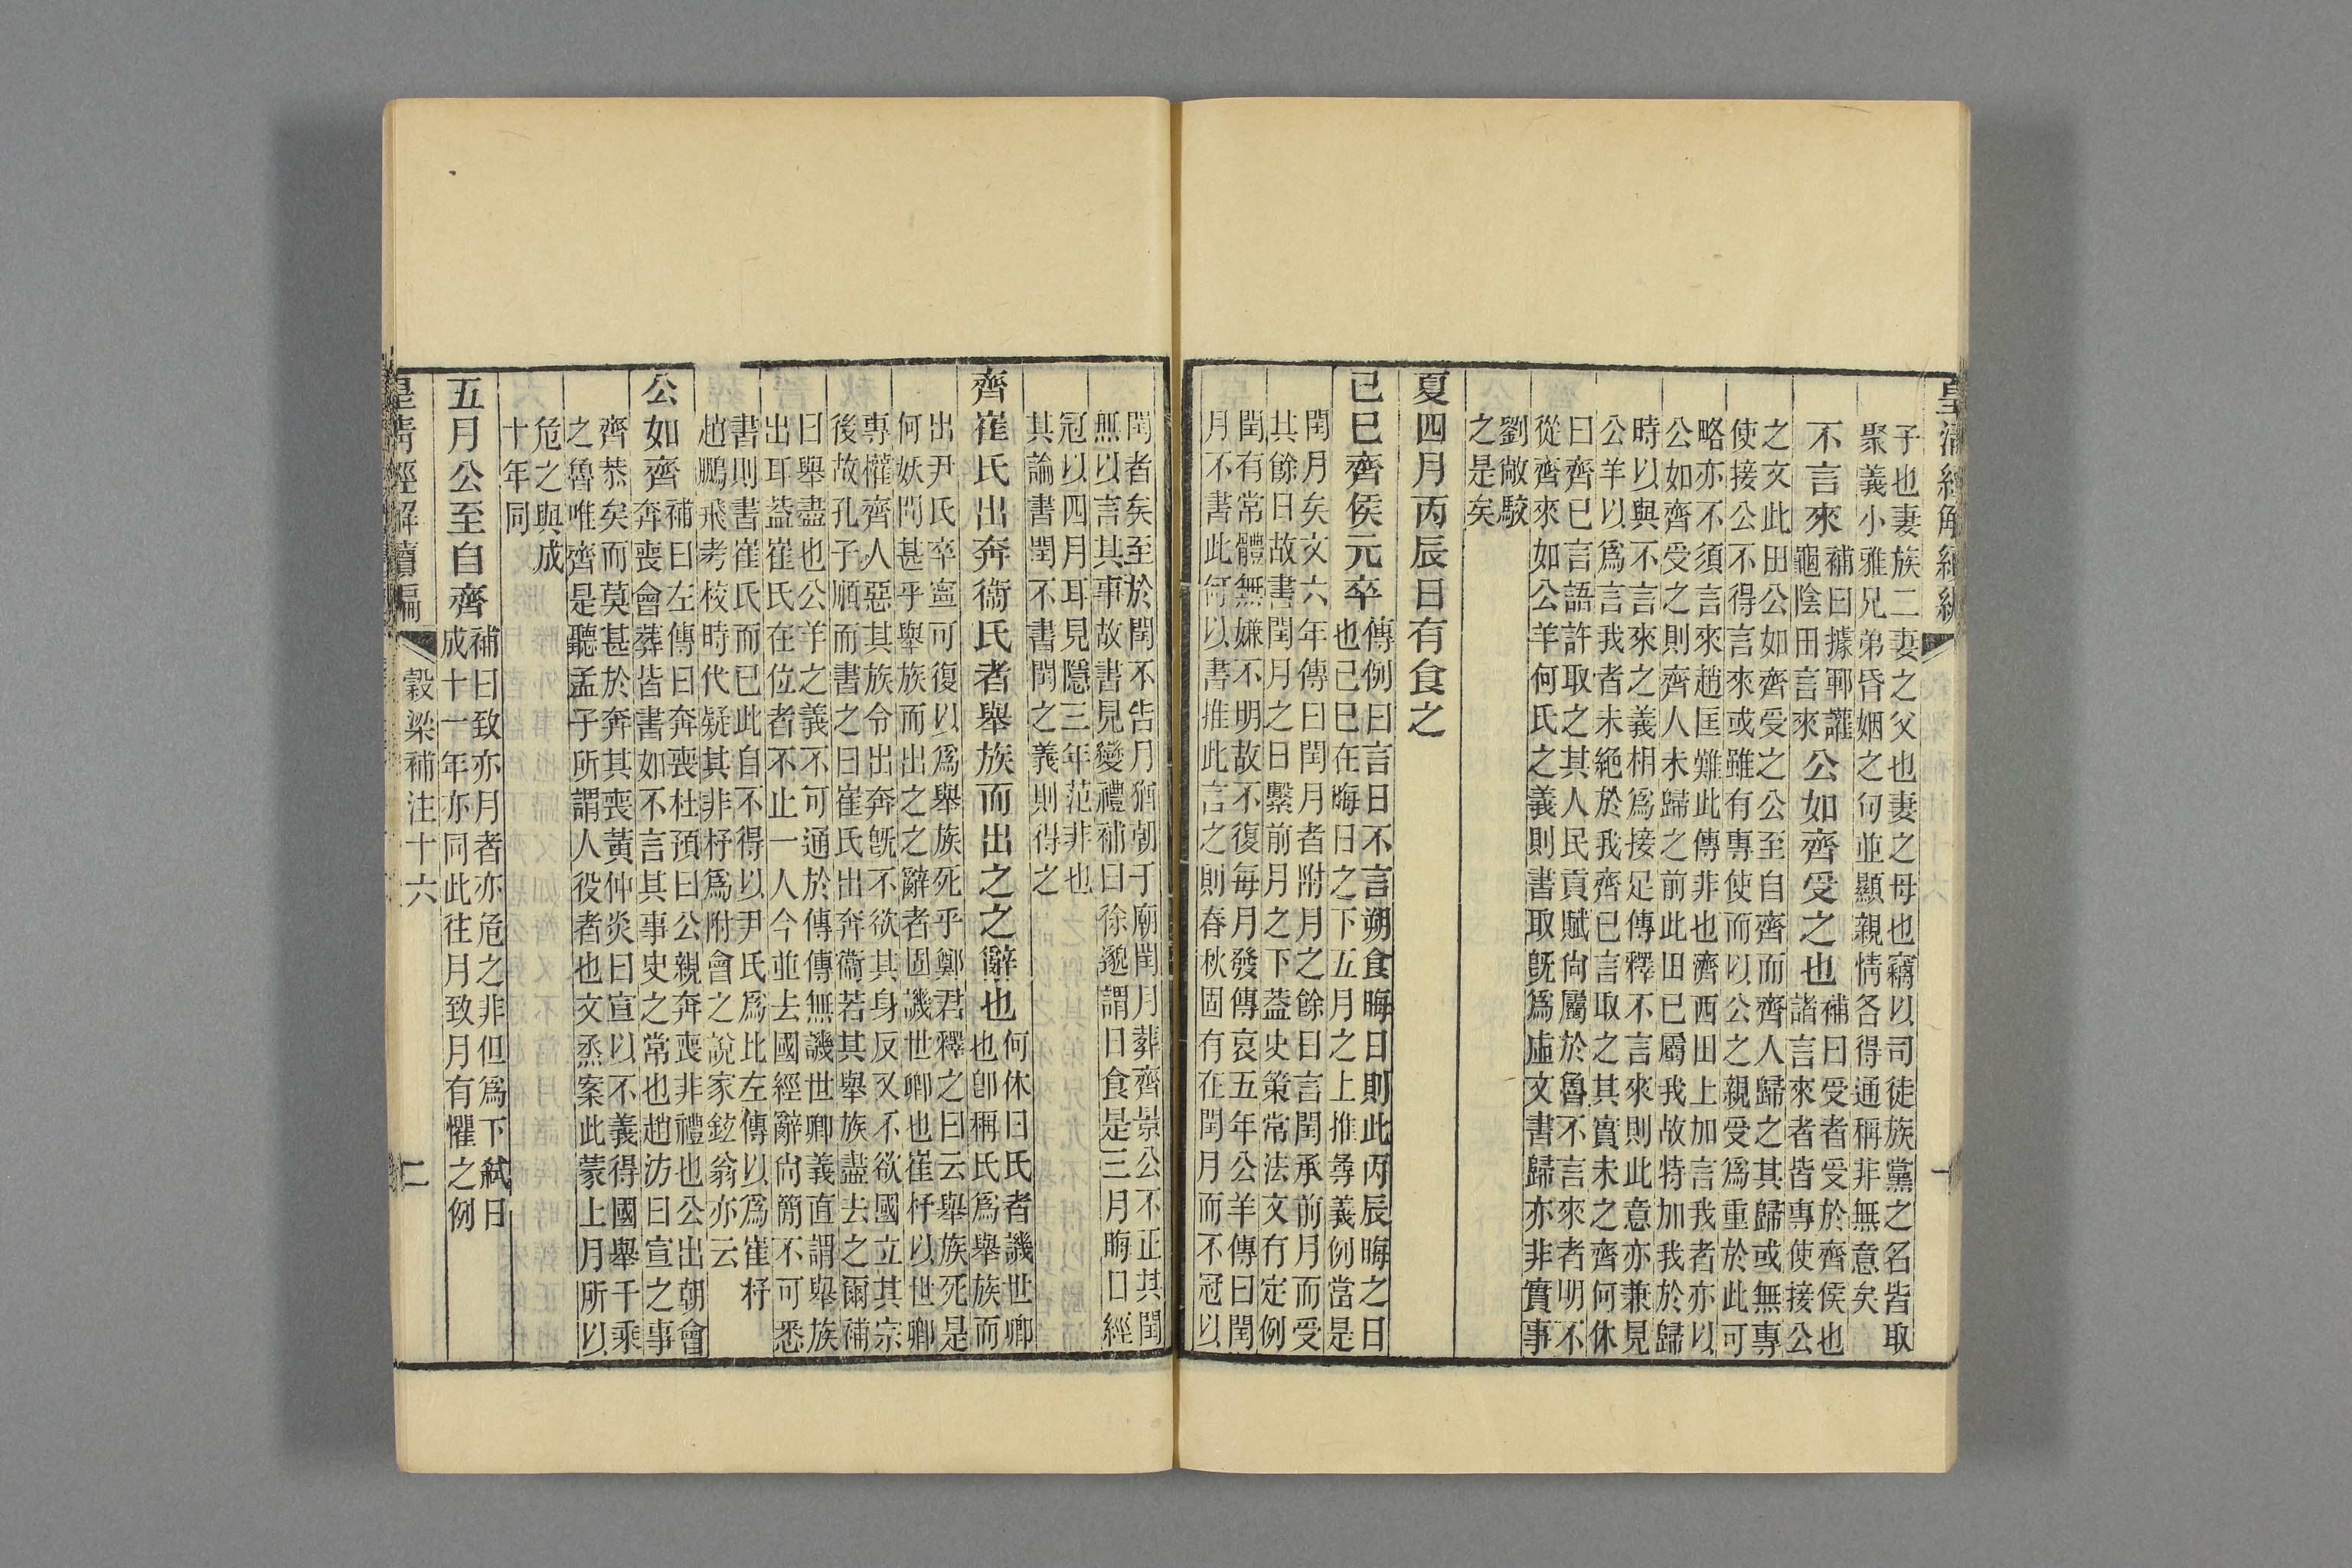 皇清經解續編
一
子也妻族二妻之父也妻之母也竊以司徒族黨之名皆取
聚義小雅兄弟昏姻之句並顯親情各得通稱非無意矣
不言來
補曰據鄆讙
龜陰田言來
公如齊受之也
補曰受者受於齊侯也
諸言來者皆專使接公
之文此田公如齊受之公至自齊而齊人歸之其歸或無專
使接公不得言來或雖有專使而以公之親受為重於此可
略亦不須言來趙匡難此傳非也濟西田上加言我者亦以
公如齊受之則齊人未歸之前此田已屬我故特加我於歸
時以與不言來之義相為接足傳釋不言來則此意亦兼見
公羊以為言我者未絕於我齊已言取之其實未之齊何休
曰齊已言語許取之其人民貢賦尙屬於魯不言來者明不
從齊來如公羊何氏之義則書取旣為虛文書歸亦非實事
劉敞駮
之是矣
夏四月丙辰日有食之
己巳齊侯元卒
傳例曰言日不言朔食晦日則此丙辰晦之日
也已巳在晦日之下五月之上推尋義例當是
閏月矣文六年傳曰閏月者附月之餘日言閏承前月而受
其餘日故書閏月之日繫前月之下葢史策常法文有定例
閏有常體無嫌不明故不復每月發傳哀五年公羊傳曰閏
月不書此何以書推此言之則春秋固有在閏月而不冠以
閏者矣至於閏不告月猶朝于廟閏月葬齊景公不正其閏
無以言其事故書見變禮補曰徐邈謂日食是三月晦日經
冠以四月耳見隱三年范非也
其論書閏不書閏之義則得之
齊崔氏出奔衞氏者舉族而出之之辭也
何休曰氏者譏世卿
也卽稱氏為舉族而
出尹氏卒寧可復以為舉族死乎鄭君釋之曰云舉族死是
何妖問甚乎舉族而出之之辭者固譏世卿也崔杼以世卿
專權齊人惡其族令出奔旣不欲其身反又不欲國立其宗
後故孔子順而書之曰崔氏出奔衞若其舉族盡去之爾補
曰舉盡也公羊之義不可通於傳傳無譏世卿義直謂舉族
出耳葢崔氏在位者不止一人今並去國經辭尙簡不可悉
書則書崔氏而已此自不得以尹氏為比左傳以為崔杼
趙鵬飛考校時代疑其非杼為附會之說家鉉翁亦云
公如齊
補曰左傳曰奔喪杜預曰公親奔喪非禮也公出朝會
奔喪會葬皆書如不言其事史之常也趙汸曰宣之事
齊恭矣而莫甚於奔其喪黃仲炎曰宣以不義得國舉千乘
之魯唯齊是聽孟子所謂人役者也文烝案此蒙上月所以
危之與成
十年同
五月公至自齊
補曰致亦月者亦危之非但為下弑日
成十一年亦同此往月致月有懼之例
皇淸經解續編
穀梁補注十六
二